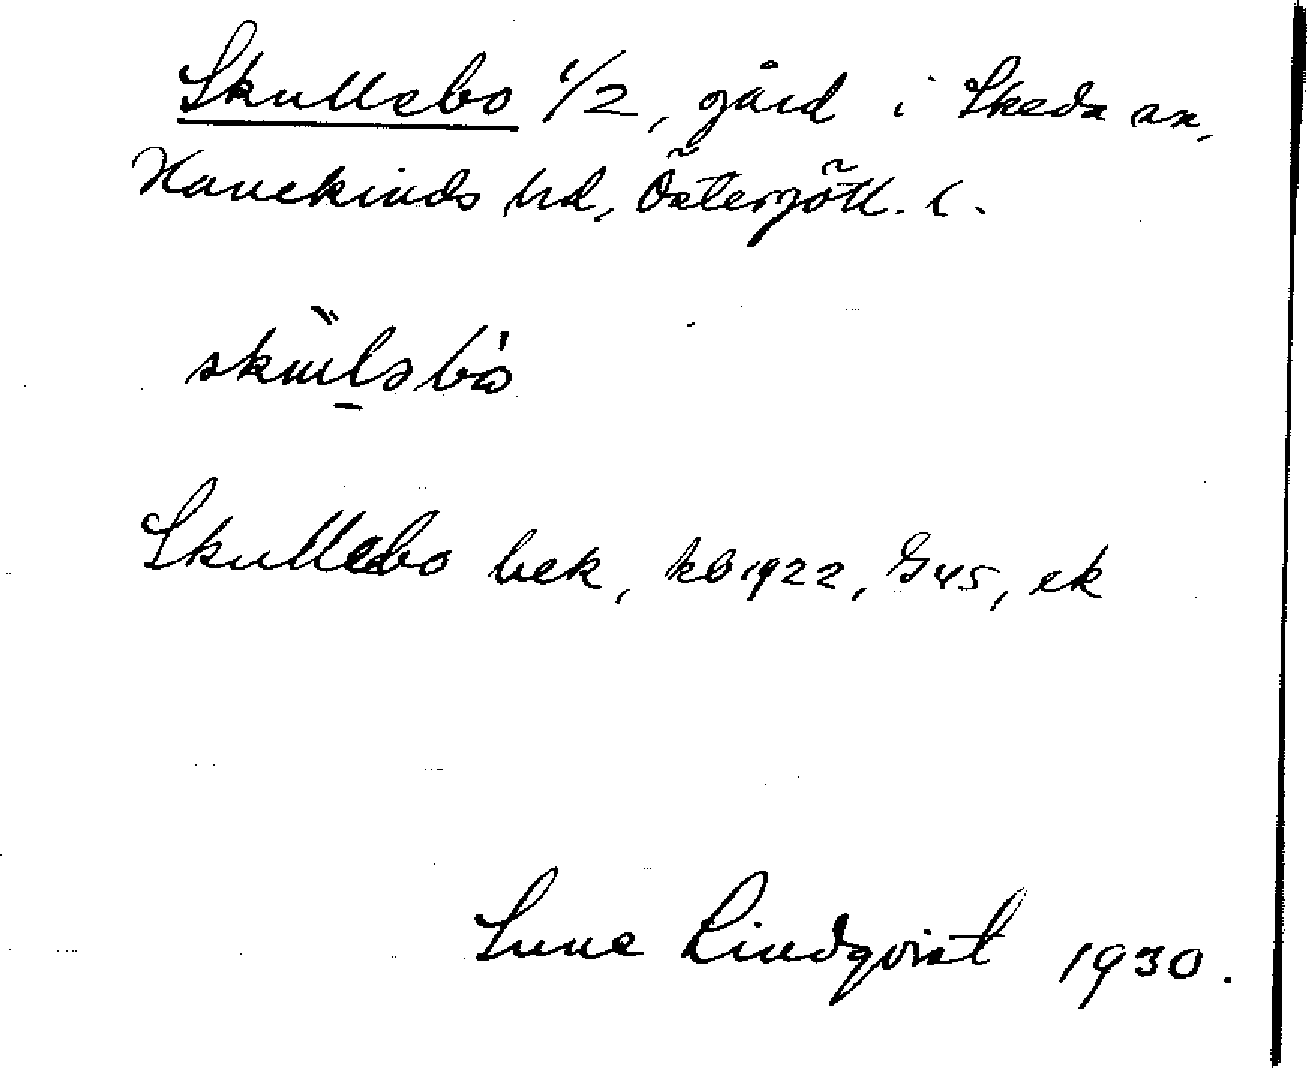 Skullebo 1/2, gård i Skeda sn,
Hanekinds hd, Östergötl. l.
Skullebo bek, kb 1922, G45, ek
Sune Lindqvist 1930.